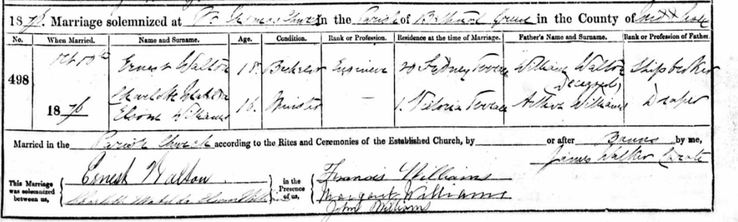 1876 Marriage solemnized at The Parish Church in the Parish of Bethnal Green in the County of Middlesex
No. When Married. Name and Surname. Age. Condition. Rank or Profession. Residence at the time of Marriage. Father's Name and Surname. Rank or Profession of Father.
498 Ernest Walton 18 Bachelor Engineer 20 Sydney Terrace William Walton Shipbroker
Deceased
1876 Charlotte Matilda Elenor Williams 16 Minister — 1. Victoria Terrace Arthur Williams Draper
Married in the Parish Church according to the Rites and Ceremonies of the Established Church, by or after Banns by me,
James Walker Curate
This Marriage was solemnized between us, Ernest Walton in the Presence of us, Francis Williams
Charlotte Matilda Margaret Williams
John Williams